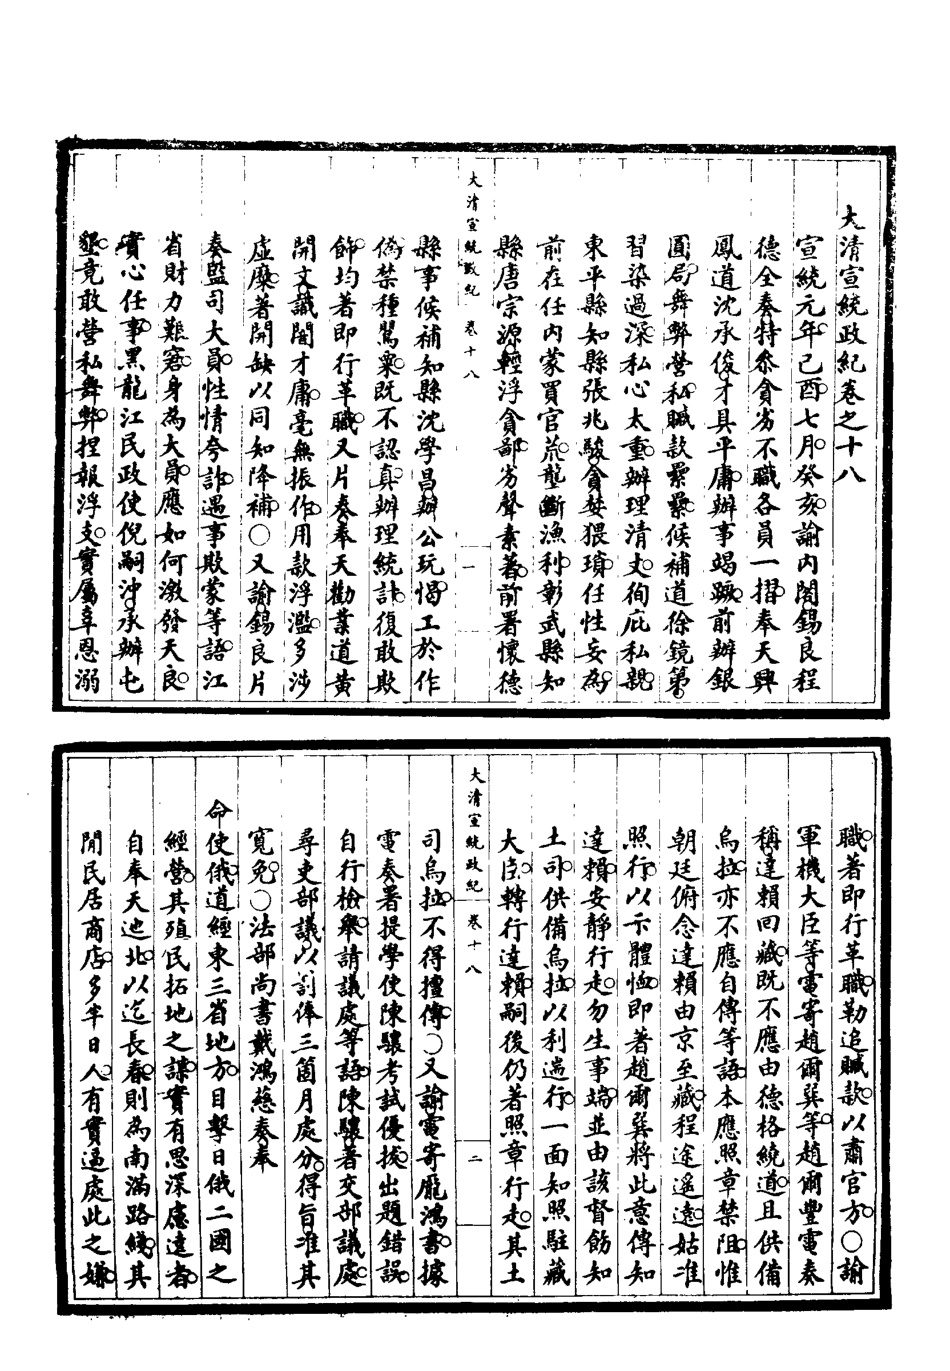 大清宣統政紀卷之十八
宣統元年己酉七月癸亥諭内閣錫良程
德全奏特叅貪劣不職各員一摺奉天興
鳳道沈承俊才具平庸辦事竭蹶前辦銀
圓局舞弊營私贓款纍纍候補道徐鏡第
習染過深私心太重辦理清丈徇庇私親
東平縣知縣張兆駿貪婪猥瑣任性妄為
前在任内蒙買官荒壟斷漁利彰武縣知
縣唐宗源輕浮貪鄙劣聲素著前署懷德
大清宣統政紀 卷十八 一
縣事候補知縣沈學昌辦公玩愒工於作
偽禁種罌粟既不認真辦理統計復敢欺
飾均著即行革職又片奏奉天勸業道黄
開文識闇才庸毫無振作用款浮濫多涉
虛糜著開缺以同知降補○又諭錫良片
奏監司大員性情夸詐遇事欺蒙等語江
省財力艱窘身為大員應如何激發天良
實心任事黑龍江民政使倪嗣沖承辦屯
墾竟敢營私舞弊捏報浮支實屬辜恩溺
職著即行革職勒追贓款以肅官方○諭
軍機大臣等電寄趙爾巽等趙爾豐電奏
稱達賴回藏既不應由德格繞道且供備
烏拉亦不應自傳等語本應照章禁阻惟
朝廷俯念達賴由京至藏程途遥遠姑准
照行以示體恤即著趙爾巽將此意傳知
達賴安靜行走勿生事端並由該督飭知
土司供備烏拉以利遄行一面知照駐藏
大臣轉行達賴嗣後仍著照章行走其土
大清宣統政紀 卷十八 二
司烏拉不得擅傳○又諭電寄龐鴻書據
電奏署提學使陳驤考試優拔出題錯誤
自行檢舉請議處等語陳驤著交部議處
尋吏部議以罰俸三箇月處分得旨准其
寬免○法部尚書戴鴻慈奏奉
命使俄道經東三省地方目擊日俄二國之
經營其殖民拓地之謀實有思深慮遠者
自奉天迤北以迄長春則為南滿路綫其
間民居商店多半日人有實逼處此之嫌